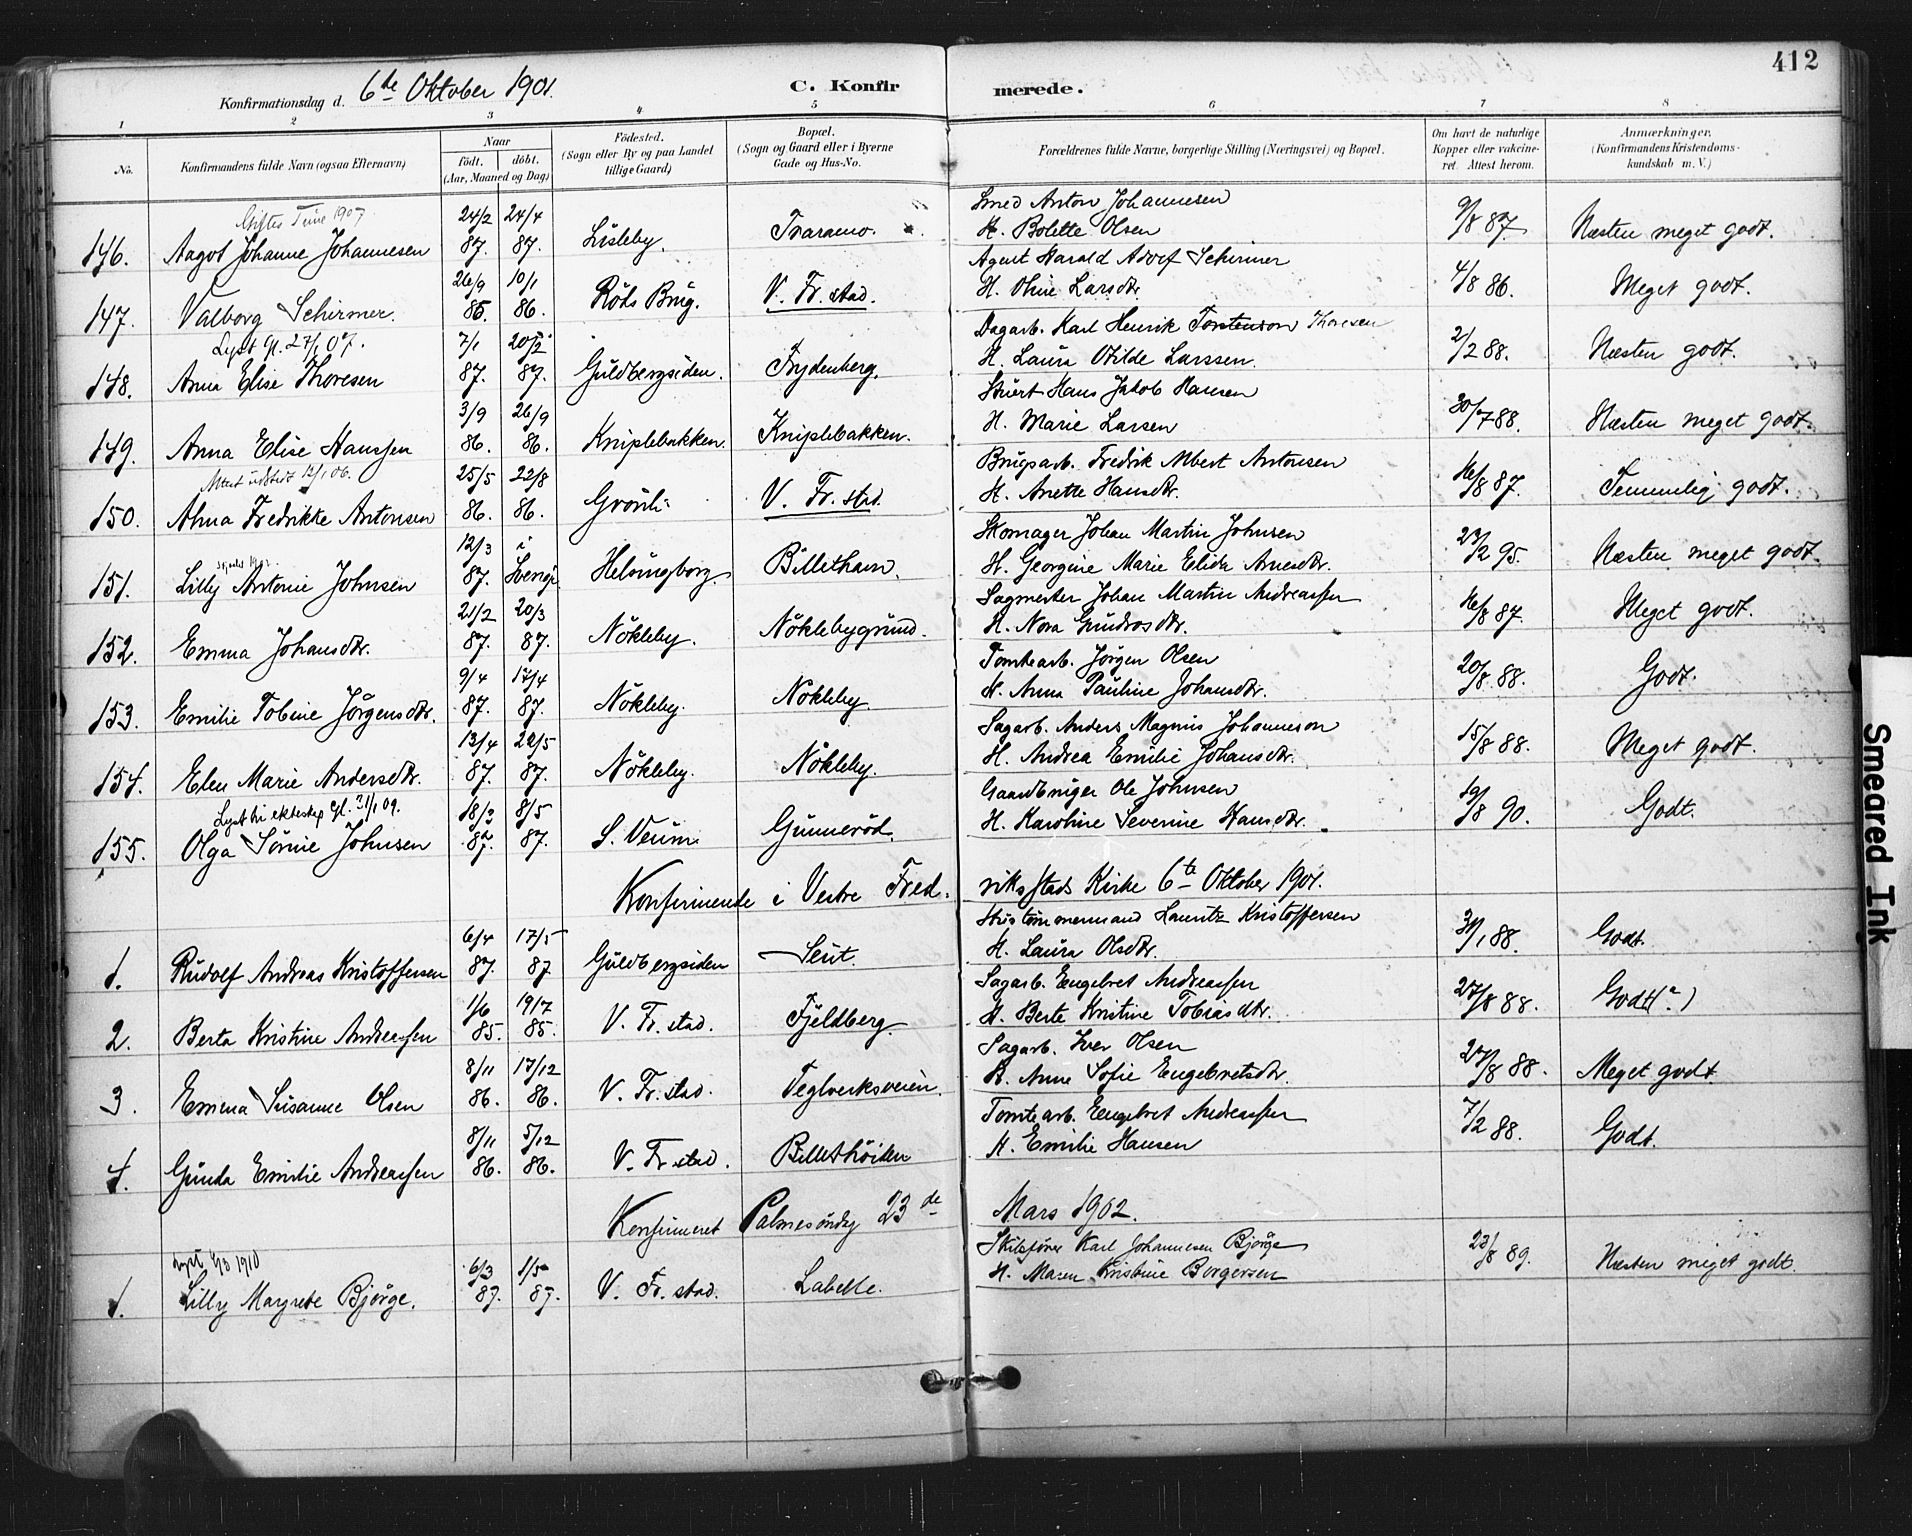 412
Konfirmationsdag d. 6te Oktober 1901. C. Konfirmerede.
1 2 3 4 5 6 7 8
No. Konfirmandens fulde Navn (ogsaa Efternavn) Naar født, døbt. (Aar, Maaned og Dag) Fødested. (Sogn eller By og paa Landet tillige Gaard) Bopæl. (Sogn og Gaard eller i Byerne Gade og Hus-No. Forældrenes fulde Navne, borgerlige Stilling (Næringsvei) og Bopæl. Om havt de naturlige Kopper eller vakcineret. Attest herom. Anmærkninger. (Konfirmandens Kristendomskundskab m. V.)
Giftes Tune 1907 24/2 24/4 Smed Anton Johannesen
146. Aagot Johanne Johannesen 87. 87. Lisleby. Traramo. H. Bolette Olsen 9/8 87. Næsten meget godt.
26/9 10/1 Agent Harald Adolf Schirmer
147. Valborg Schirmer. 85. 86. Röds Brug. V. Fr. stad. H. Oline Larsdtr. 4/8 86. Meget godt.
Lyst Gl. 27/1 07. 7/1 20/2 Dagarb. Karl Henrik Torstenson Thoresen
148. Anna Elise Thoresen 87. 87. Guldbergsiden. Frydenberg. H. Laura Otilde Larssen. 2/2 88. Næsten godt.
3/9 26/9 Stuert Hans Jakob Hansen
149. Anna Elise Hanssen 86. 86. Kniplebakken. Kniplebakken. H. Marie Larsen 30/7 88. Næsten meget godt.
Attest udstedt 12/1 06. 25/5 22/8 Brugsarb. Fredrik Albert Antonsen
150. Alma Fredrikke Antonsen 86. 86. Grönli V. Fr. stad. H. Anette Hansdtr. 16/8 87. Temmelig godt.
12/3 i Skomager Johan Martin Johnsen
151. Lilly Antonie Johnsen 87. Sverige Helsingborg Billethavn. H. Georgine Marie Elida Arnesdtr. 23/2 95. Næsten meget godt.
21/2 20/3 Sagmester Johan Martin Andreassen
152. Emma Johansdtr. 87. 87. Nökleby. Nöklebygrund. H. Nora Gundrosdtr. 16/8 87. Meget godt.
9/4 17/4 Tomtearb. Jörgen Olsen
153. Emilie Tobine Jörgensdtr. 87. 87. Nökleby. Nökleby. H. Anna Pauline Johansdtr. 20/8 88. Godt.
13/4 22/5 Sagarb. Anders Magnus Johanneson
154. Elen Marie Andersdtr. 87. 87. Nökleby. Nökleby. H. Andrea Emilie Johansdtr. 15/8 88. Meget godt.
Lyst til ekteskap Gl. 31/1 09. 18/3 8/5 Gaardbruger Ole Johnsen
155. Olga Sörine Johnsen 87. 87. S. Veum Gunneröd. H. Karoline Severine Hansdtr. 19/8 90. Godt.
Konfirmerede i Vestre Fredriksstads Kirke 6te Oktober 1901.
6/4 17/5 Hustömmermand Lauritz Kristoffersen
1. Rudolf Andreas Kristoffersen 87. 87 Guldbergsiden Seut. H. Laura Olsdtr. 30/1 88. Godt.
1/6 19/7 Sagarb. Engebret Andreassen
2. Berta Kristine Andreassen 85. 85. V. Fr. stad. Fjeldberg. H. Berte Kristine Tobiasdtr. 27/8 88. Godt(?)
8/11 17/12 Sagarb. Iver Olsen
3. Emma Susanne Olsen 86. 86. V. Fr. stad. Teglverksveien. H. Anne Sofie Engebretsdtr. 27/8 88. Meget godt
8/11 5/12 Tomtearb. Engebret Andreassen
4. Gunda Emilie Andreassen 86. 86. V. Fr. stad. Billethöiden H. Emilie Hansen 7/2 88. Godt.
Konfirmeret Palmesöndag 23de Mars 1902.
Lyst 6/3 1910 6/3 1/5 Skibsförer Karl Johannesen Bjørge
1. Lilly Margrete Björge. 87. 87. V. Fr. stad. Labelle. H. Maren Kristine Borgersen 23/8 89. Næsten meget godt.
Smeared Ink